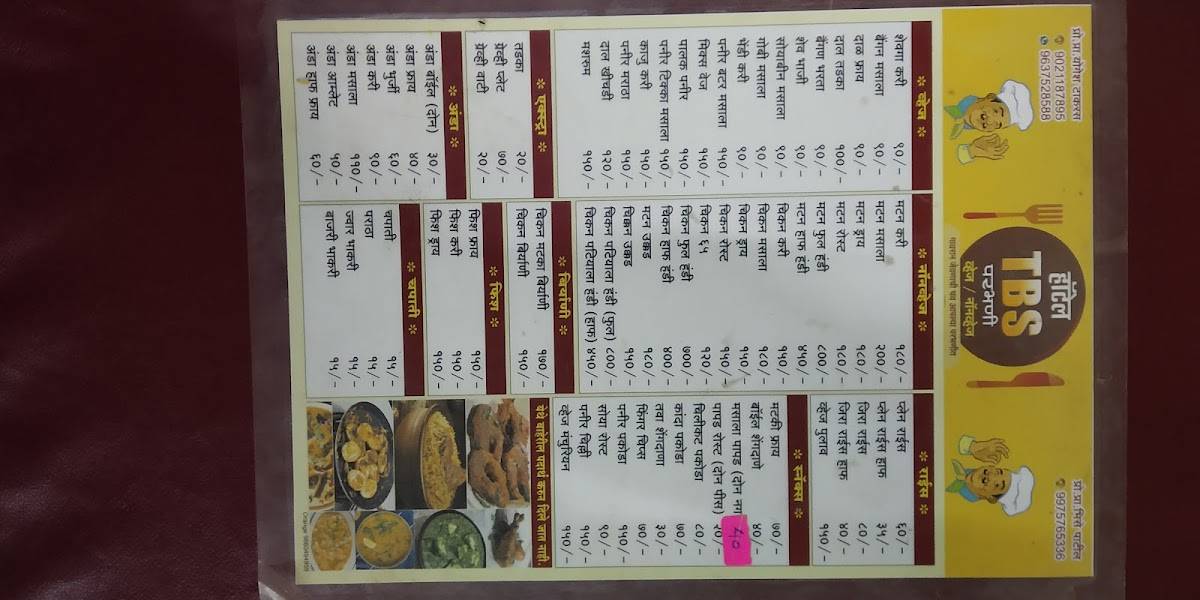 प्रो.प्रा.योगेश टाकरस
9021187895
9637528588
हॉटेल
TBS
परभणी
व्हेज / नॉनव्हेज
प्रो.प्रा.भिसे पाटील
9975765336
* व्हेज *
शेवगा करी ९०/-
बैंगन मसाला ९०/-
दाळ फ्राय ९०/-
दाल तडका १००/-
बैंगण भरता ९०/-
शेव भाजी ९०/-
सोयाबीन मसाला ९०/-
गोबी मसाला ९०/-
भेंडी करी ९०/-
पनीर बटर मसाला १५०/-
मिक्स वेज १५०/-
पालक पनीर १५०/-
पनीर टिक्का मसाला १५०/-
काजु करी १५०/-
पनीर मराठा १५०/-
दाल खीचडी १२०/-
मशरूम १५०/-
* एक्स्ट्रा *
तडका २०/-
ग्रेव्ही प्लेट ७०/-
ग्रेव्ही वाटी २०/-
* अंडा *
अंडा बॉईल (दोन) ३०/-
अंडा फ्राय ४०/-
अंडा भुर्जी ६०/-
अंडा करी ९०/-
अंडा मसाला ११०/-
अंडा आम्लेट ५०/-
अंडा हाफ फ्राय ६०/-
* नॉनव्हेज *
मटन करी १८०/-
मटन मसाला २००/-
मटन ड्राय १८०/-
मटन रोस्ट १८०/-
मटन फुल हंडी ८००/-
मटन हाफ हंडी ४५०/-
चिकन करी १५०/-
चिकन मसाला १८०/-
चिकन ड्राय १५०/-
चिकन रोस्ट १५०/-
चिकन ६५ १२०/-
चिकन फुल हंडी ७००/-
चिकन हाफ हंडी ४००/-
मटन उक्कड १८०/-
चिकन उक्कड १५०/-
चिकन पटियाला हंडी (फुल) ८००/-
चिकन पटियाला हंडी (हाफ) ४५०/-
* बिर्याणी *
चिकन मटका बिर्याणी १७०/-
चिकन बिर्याणी १५०/-
* फिश *
फिश फ्राय १५०/-
फिश करी १५०/-
फिश ड्राय १५०/-
* चपाती *
चपाती १५/-
पराठा १५/-
ज्वार भाकरी १५/-
बाजरी भाकरी १५/-
* राईस *
प्लेन राईस ६०/-
प्लेन राईस हाफ ३५/-
जिरा राईस ८०/-
जिरा राईस हाफ ४०/-
व्हेज पुलाव १५०/-
* स्नॅक्स *
मटकी फ्राय ७०/-
बॉईल शेंगदाणे ४०/-
मसाला पापड (दोन नग ५०
पापड रोस्ट (दोन पीस) २०/-
चिलीकट पकोडा ८०/-
कांदा पकोडा ७०/-
तवा शेंगदाणा ३०/-
फिंगर चिप्स ७०/-
पनीर पकोडा ११०/-
सोया रोस्ट ९०/-
पनीर चिल्ली १५०/-
व्हेज मंचुरियन ११०/-
येथे बाहेरील पदार्थ करुन दिले जात नाही.